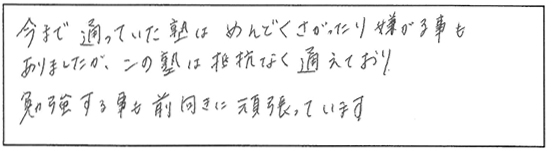 今まで通っていた塾は めんどくさがったり嫌がる事も
ありましたが、この塾は抵抗なく通えており
勉強する事も前向きに頑張っています